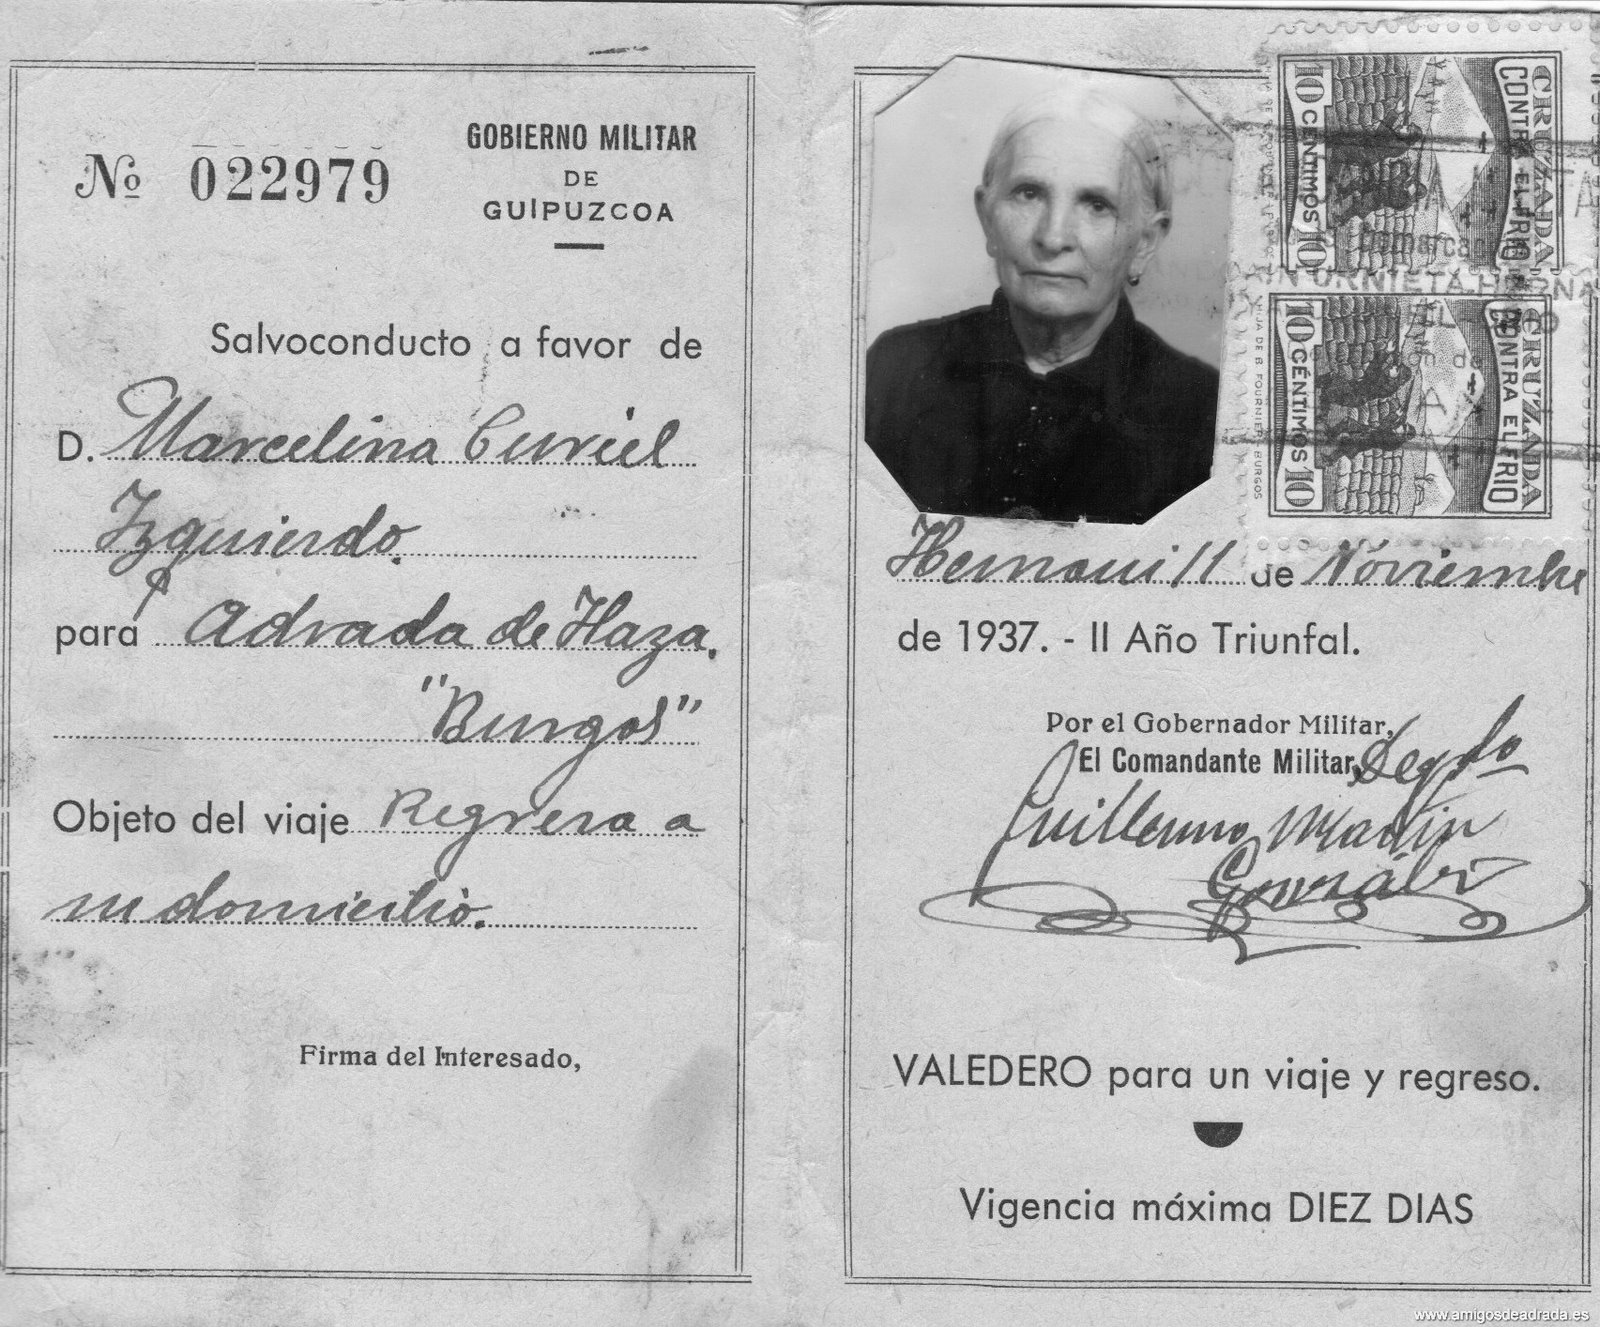 Nº 022979
GOBIERNO MILITAR
DE
GUIPUZCOA
Salvoconducto a favor de
D. Marcelina Curiel
Izquierdo.
para Adrada de Haza.
"Burgos"
Objeto del viaje Regresa a
su domicilio.
Firma del Interesado,
CRUZADA
CONTRA EL FRIO
10 CENTIMOS 10
CRUZADA
CONTRA EL FRIO
10 CÉNTIMOS 10
URNIETA
HIJA DE B. FOURNIER BURGOS
Hernani 11 de Noviembre
de 1937. - II Año Triunfal.
Por el Gobernador Militar,
El Comandante Militar,
Guillermo Martin
González
VALEDERO para un viaje y regreso.
Vigencia máxima DIEZ DIAS
www.amigosdeadrada.es